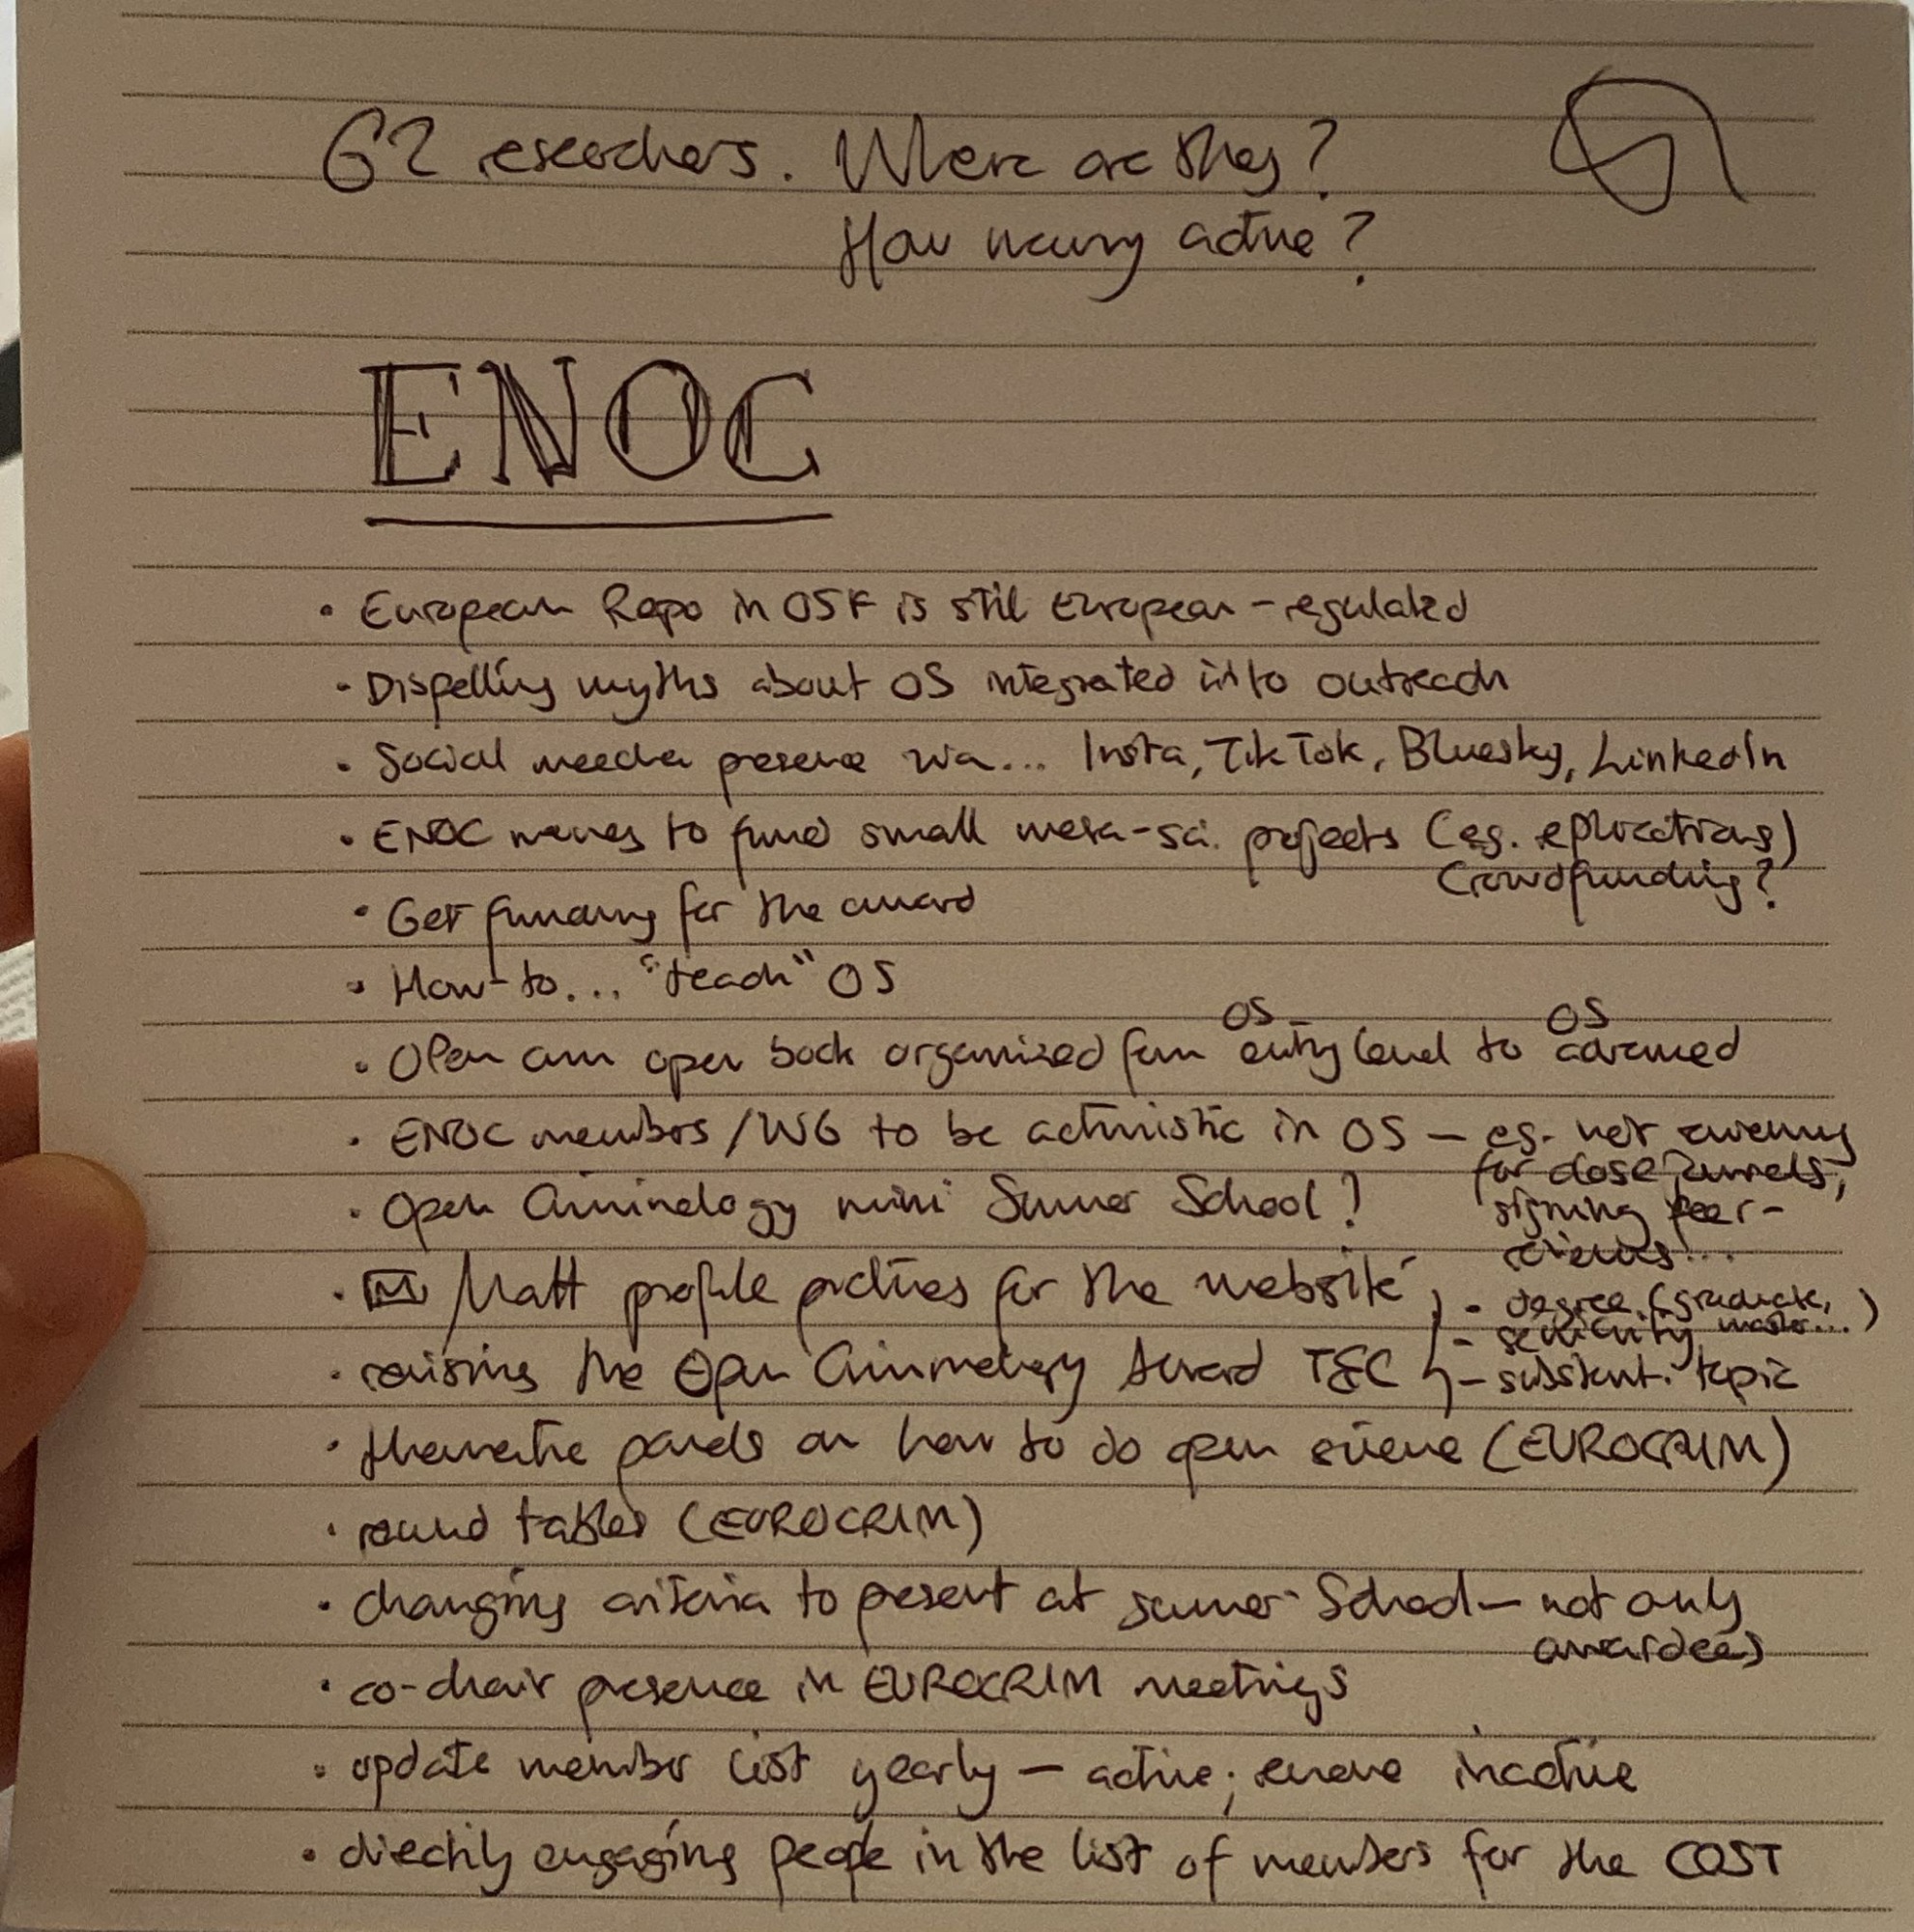 62 researchers. Where are they?
How many active?
ENOC
• European Repo in OSF is still European-regulated
• Dispelling myths about OS integrated into outreach
• Social media presence via... Insta, TikTok, Bluesky, LinkedIn
• ENOC moves to fund small meta-sci. projects (eg. replications)
Crowdfunding?
• Get funding for the award
• How-to... "teach" OS
• Open crim open book organized from OS entry level to OS advanced
• ENOC members/WG to be activistic in OS – eg. not reviewing
for close journals,
signing peer-
reviews...
• Open Criminology mini Summer School?
• Matt profile pictures for the website
• revising the Open Criminology Award T&C
- degree (graduate, master...)
- seniority
- substant. topic
• thematic panels on how to do open science (EUROCRIM)
• round tables (EUROCRIM)
• changing criteria to present at summer School – not only
awardees
• co-chair presence in EUROCRIM meetings
• update member list yearly – active; remove inactive
• directly engaging people in the list of members for the COST